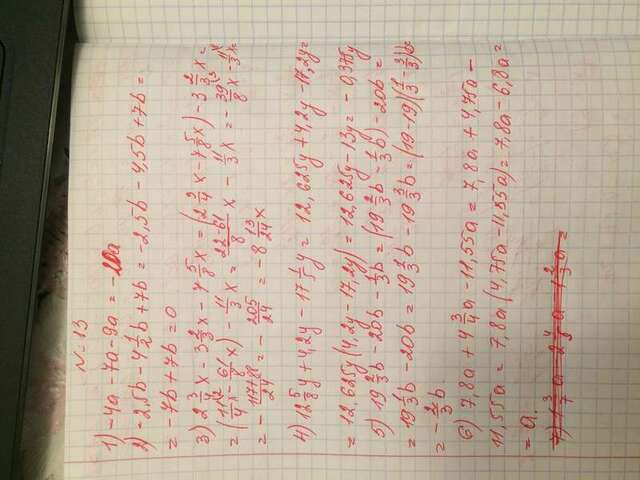 N-13
1) -4a - 7a - 9a = -20a
2) -2,5b - 4 1/2 b + 7b = -2,5b - 4,5b + 7b =
= -7b + 7b = 0
3) 2 3/4 x - 3 2/3 x - 7 5/8 x = (2 3/4 x - 7 5/8 x) - 3 2/3 x =
= (11/4 x - 61/8 x) - 11/3 x = 22-61/8 x - 11/3 x = - 39/8 x - 11/3 x =
= - 117+88/24 = - 205/24 = -8 13/24 x
4) 12 5/8 y + 4,2y - 17 1/5 y = 12,625y + 4,2y - 17,2y =
= 12,625y (4,2y - 17,2y) = 12,625y - 13y = -0,375y
5) 19 2/3 b - 20b - 1/3 b = (19 2/3 b - 1/3 b) - 20b =
= 19 1/3 b - 20b = 19 1/3 b - 19 3/3 b = (19-19)(1/3 - 3/3)b =
= - 2/3 b.
6) 7,8a + 4 3/4 a - 11,55a = 7,8a + 4,75a -
11,55a = 7,8a (4,75a - 11,55a) = 7,8a - 6,8a =
= a.
7) 1 3/7 a 2 4/9 a 1 2/3 a =